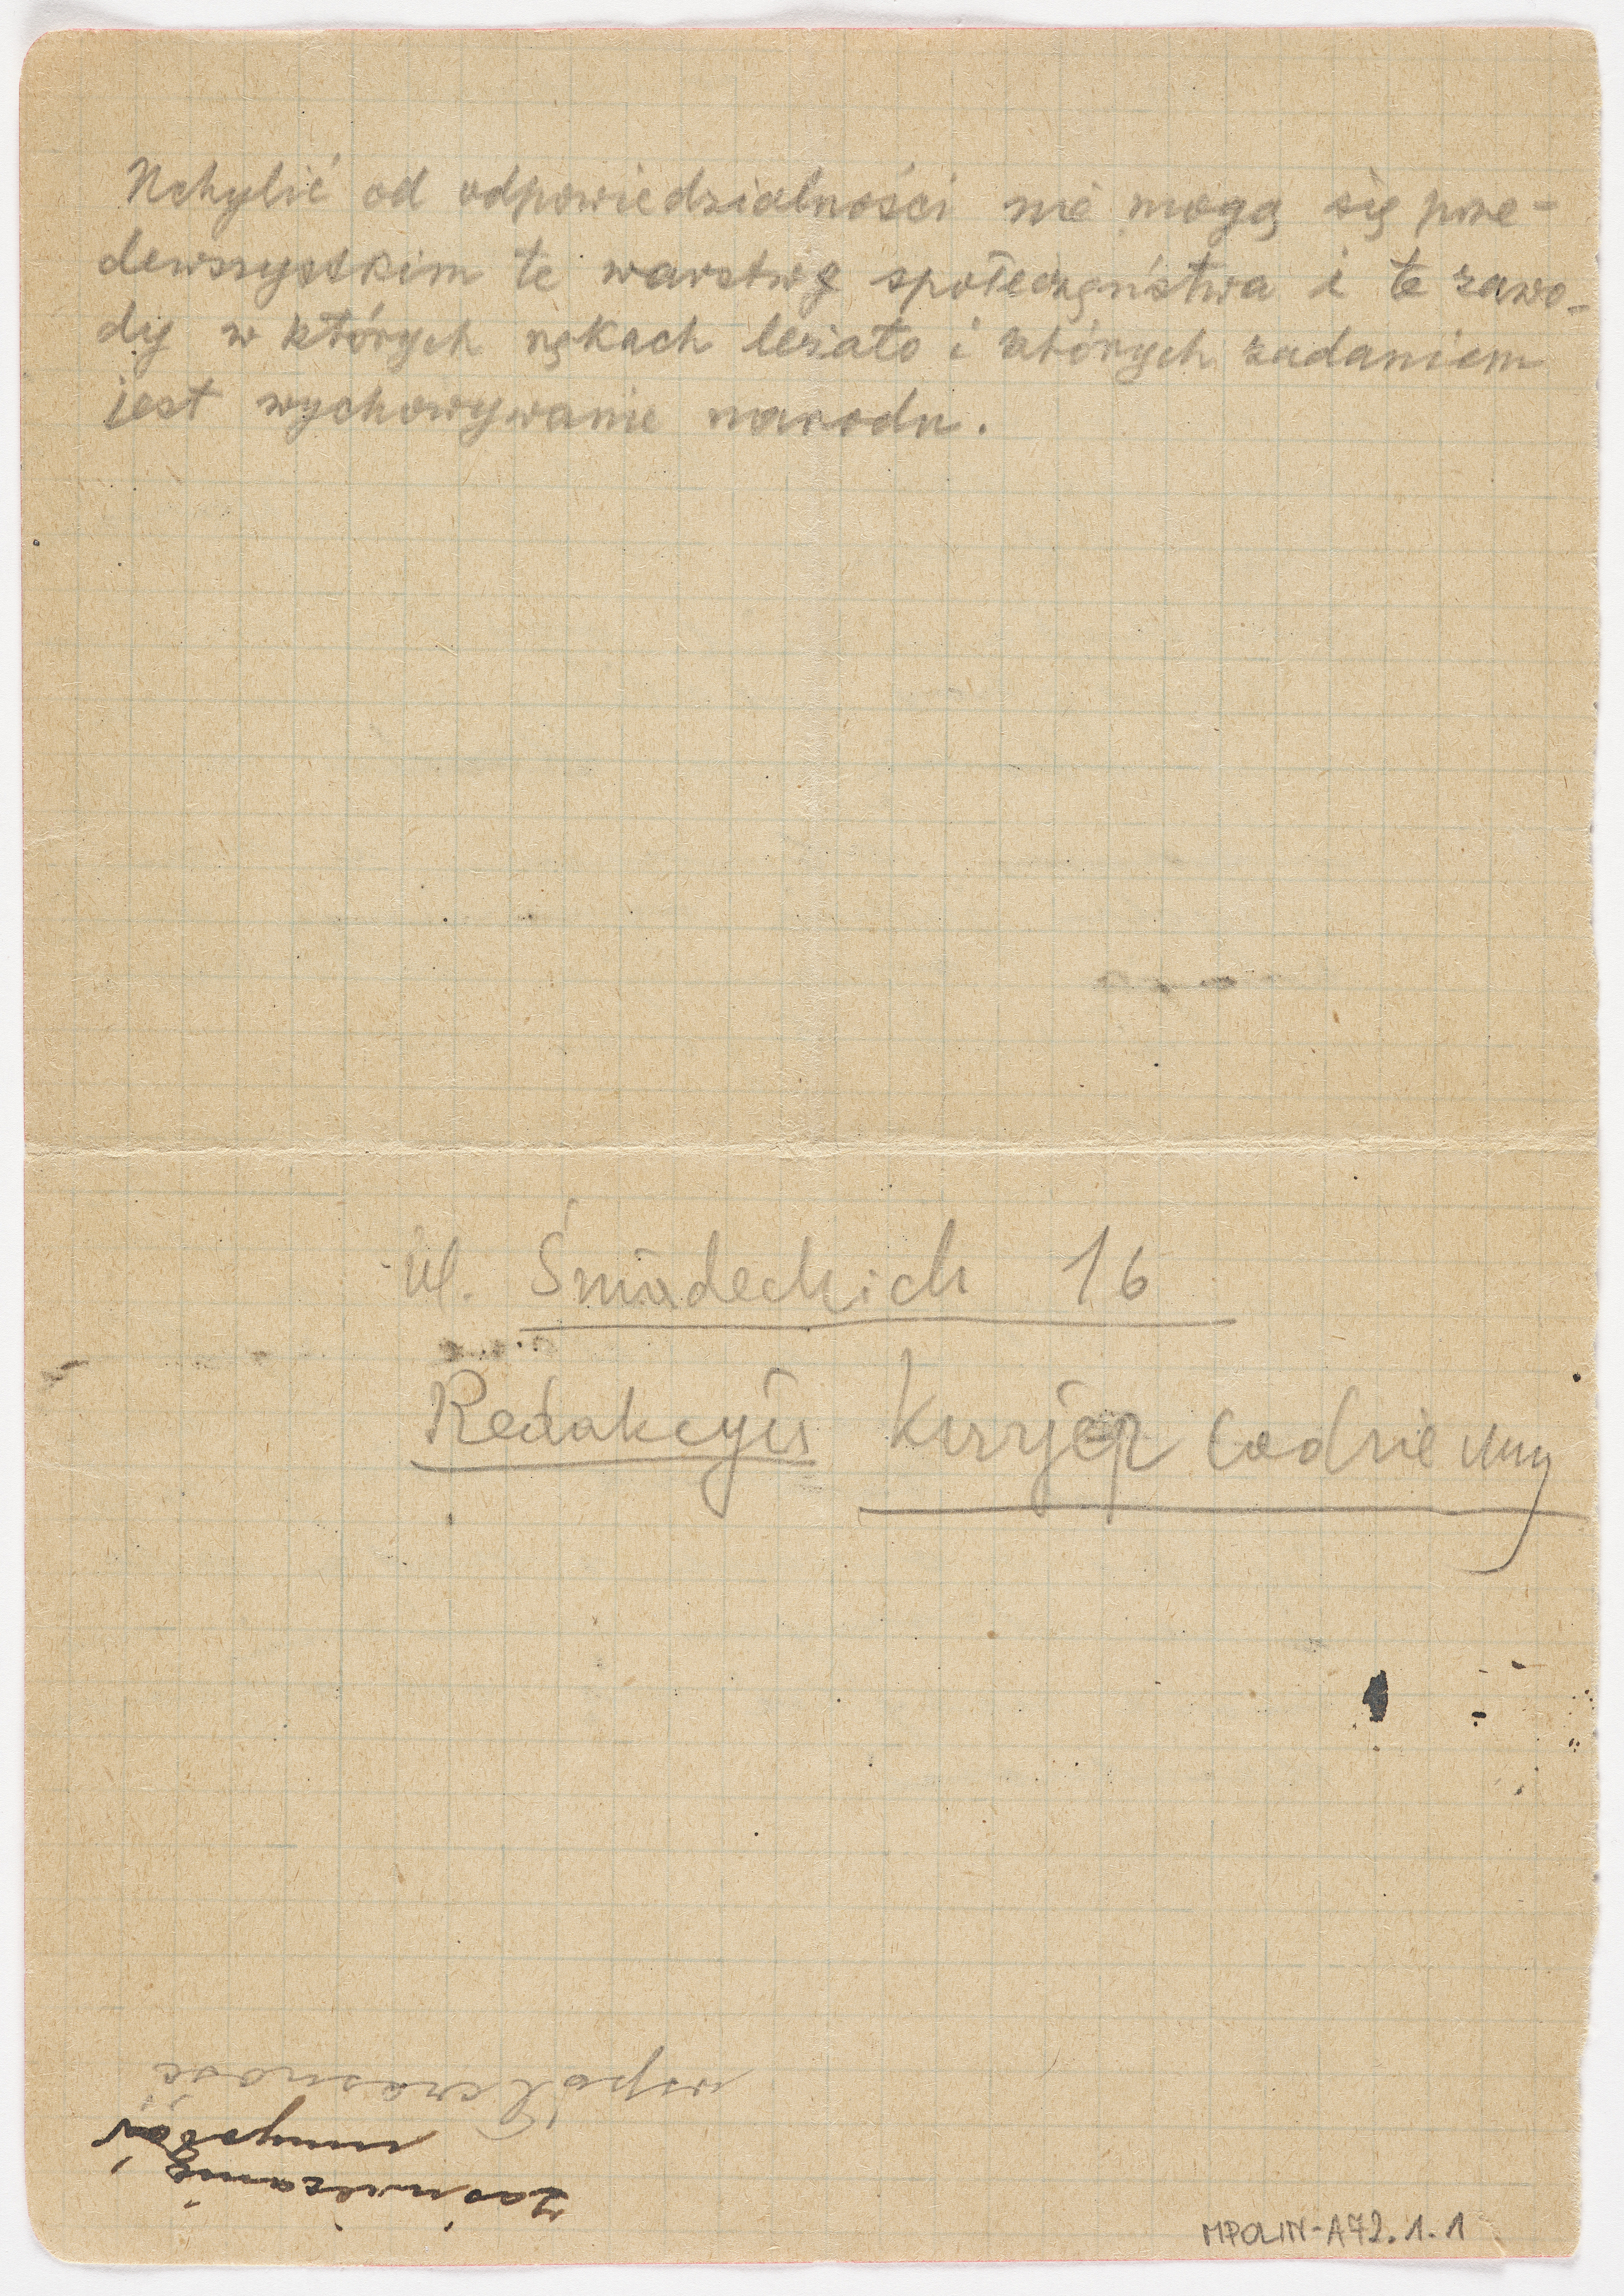 Uchylić od odpowiedzialności nie mogą się prze-
dewszystkim te warstwy społeczeństwa i te zawo-
dy w których rękach leżało i których zadaniem
jest wychowywanie narodu.
ul. Śniadeckich 16
Redakcyis Kurjer Codzienny
zaśmiecanie
umysłów
współczesność
MPOLIN-A72.1.1